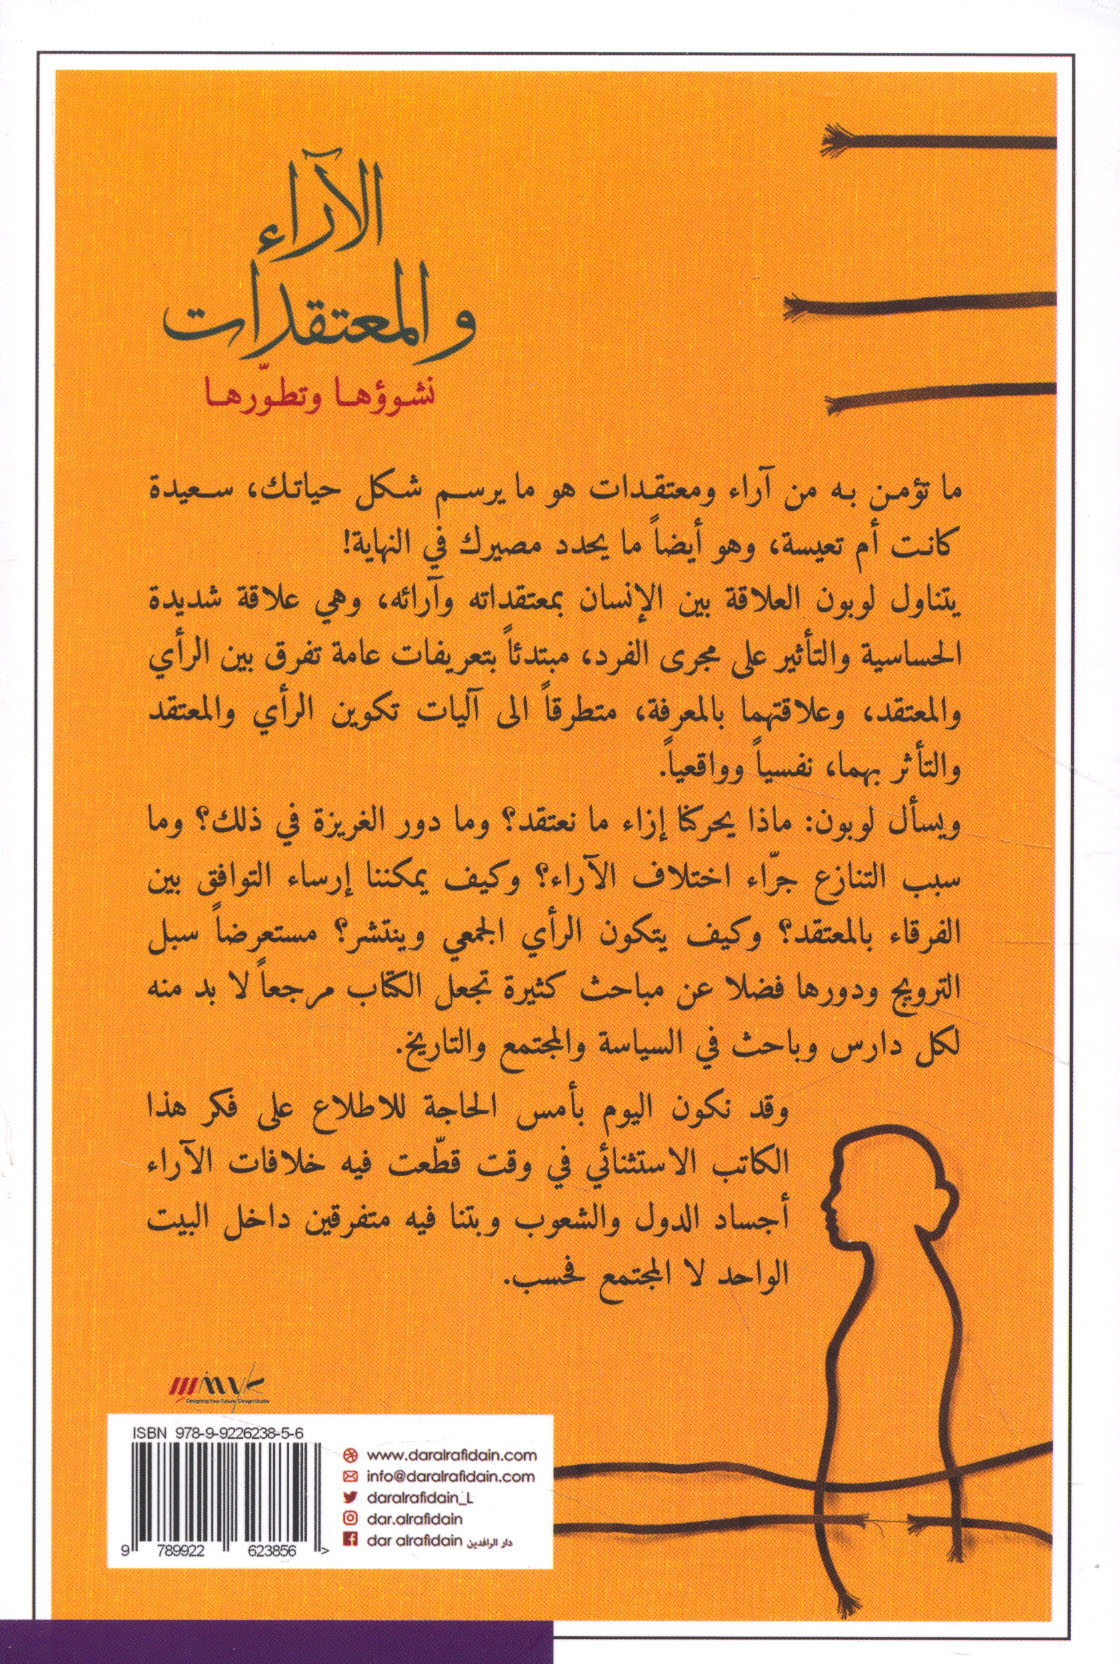 الآراء
والمعتقدات
نشوؤها وتطوّرها
ما تؤمن به من آراء ومعتقدات هو ما يرسم شكل حياتك، سعيدة
كانت أم تعيسة، وهو أيضاً ما يحدد مصيرك في النهاية!
يتناول لوبون العلاقة بين الإنسان بمعتقداته وآرائه، وهي علاقة شديدة
الحساسية والتأثير على مجرى الفرد، مبتدئاً بتعريفات عامة تفرق بين الرأي
والمعتقد، وعلاقتهما بالمعرفة، متطرقاً الى آليات تكوين الرأي والمعتقد
والتأثر بهما، نفسياً وواقعياً.
ويسأل لوبون: ماذا يحركنا إزاء ما نعتقد؟ وما دور الغريزة في ذلك؟ وما
سبب التنازع جرّاء اختلاف الآراء؟ وكيف يمكننا إرساء التوافق بين
الفرقاء بالمعتقد؟ وكيف يتكون الرأي الجمعي وينتشر؟ مستعرضاً سبل
الترويج ودورها فضلا عن مباحث كثيرة تجعل الكتاب مرجعاً لا بد منه
لكل دارس وباحث في السياسة والمجتمع والتاريخ.
وقد نكون اليوم بأمس الحاجة للاطلاع على فكر هذا
الكاتب الاستثنائي في وقت قطّعت فيه خلافات الآراء
أجساد الدول والشعوب وبتنا فيه متفرقين داخل البيت
الواحد لا المجتمع فحسب.
Designing Your Future | Design Studio
ISBN 978-9-9226238-5-6
9 789922 623856 >
www.daralrafidain.com
info@daralrafidain.com
daralrafidain_L
dar.alrafidain
dar alrafidain دار الرافدين